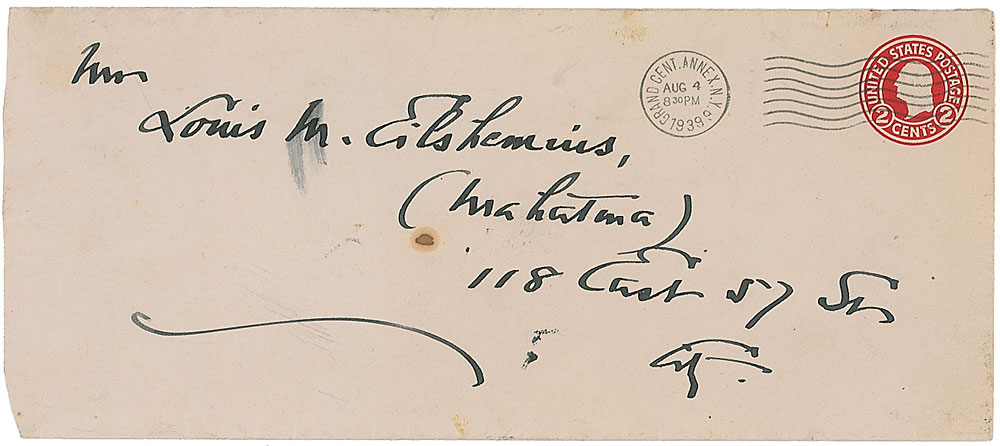 Mr
Louis M. Eilshemius,
(Mahatma)
118 East 57 St.
City.
GRAND CENT. ANNEX. N.Y.
AUG 4
8 30 PM
1939
UNITED STATES POSTAGE
2 CENTS 2